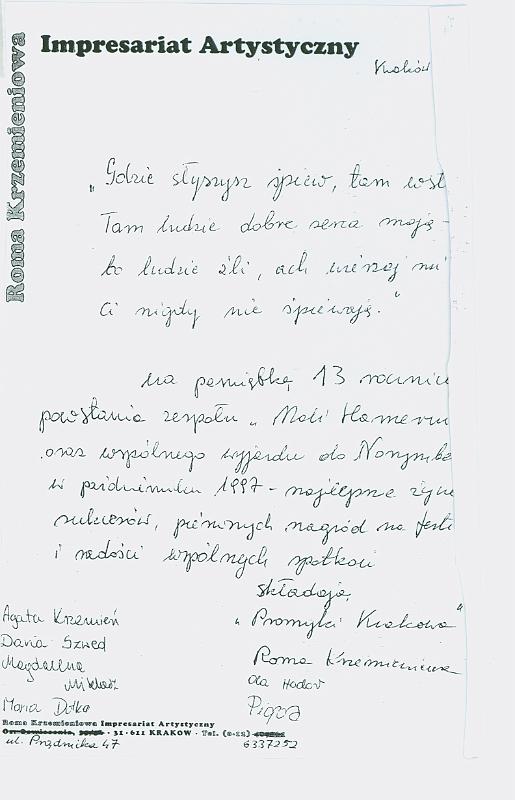 Impresariat Artystyczny
Roma Krzemieniowa
Kraków
„Gdzie słyszysz śpiew, tam wst
Tam ludzie dobre serca mają -
bo ludzie źli, ach wierzaj mi
Ci nigdy nie śpiewają."
Na pamiątkę 13 rocznic
powstania zespołu „Mali Hamern
oraz wspólnego wyjazdu do Norymbe
w październiku 1997 - najlepsze życ
sukcesów, pierwszych nagród na fest
i radości wspólnych spotkań
składają
„Promyki Krakowa"
Agata Krzemień
Daria Szwed
Magdalena
Maria Dutka
Roma Krzemieniowa
Ola
Roma Krzemieniowa Impresariat Artystyczny
31-611 KRAKÓW · Tel. (0-12)
ul. Prądnicka 47
6337252